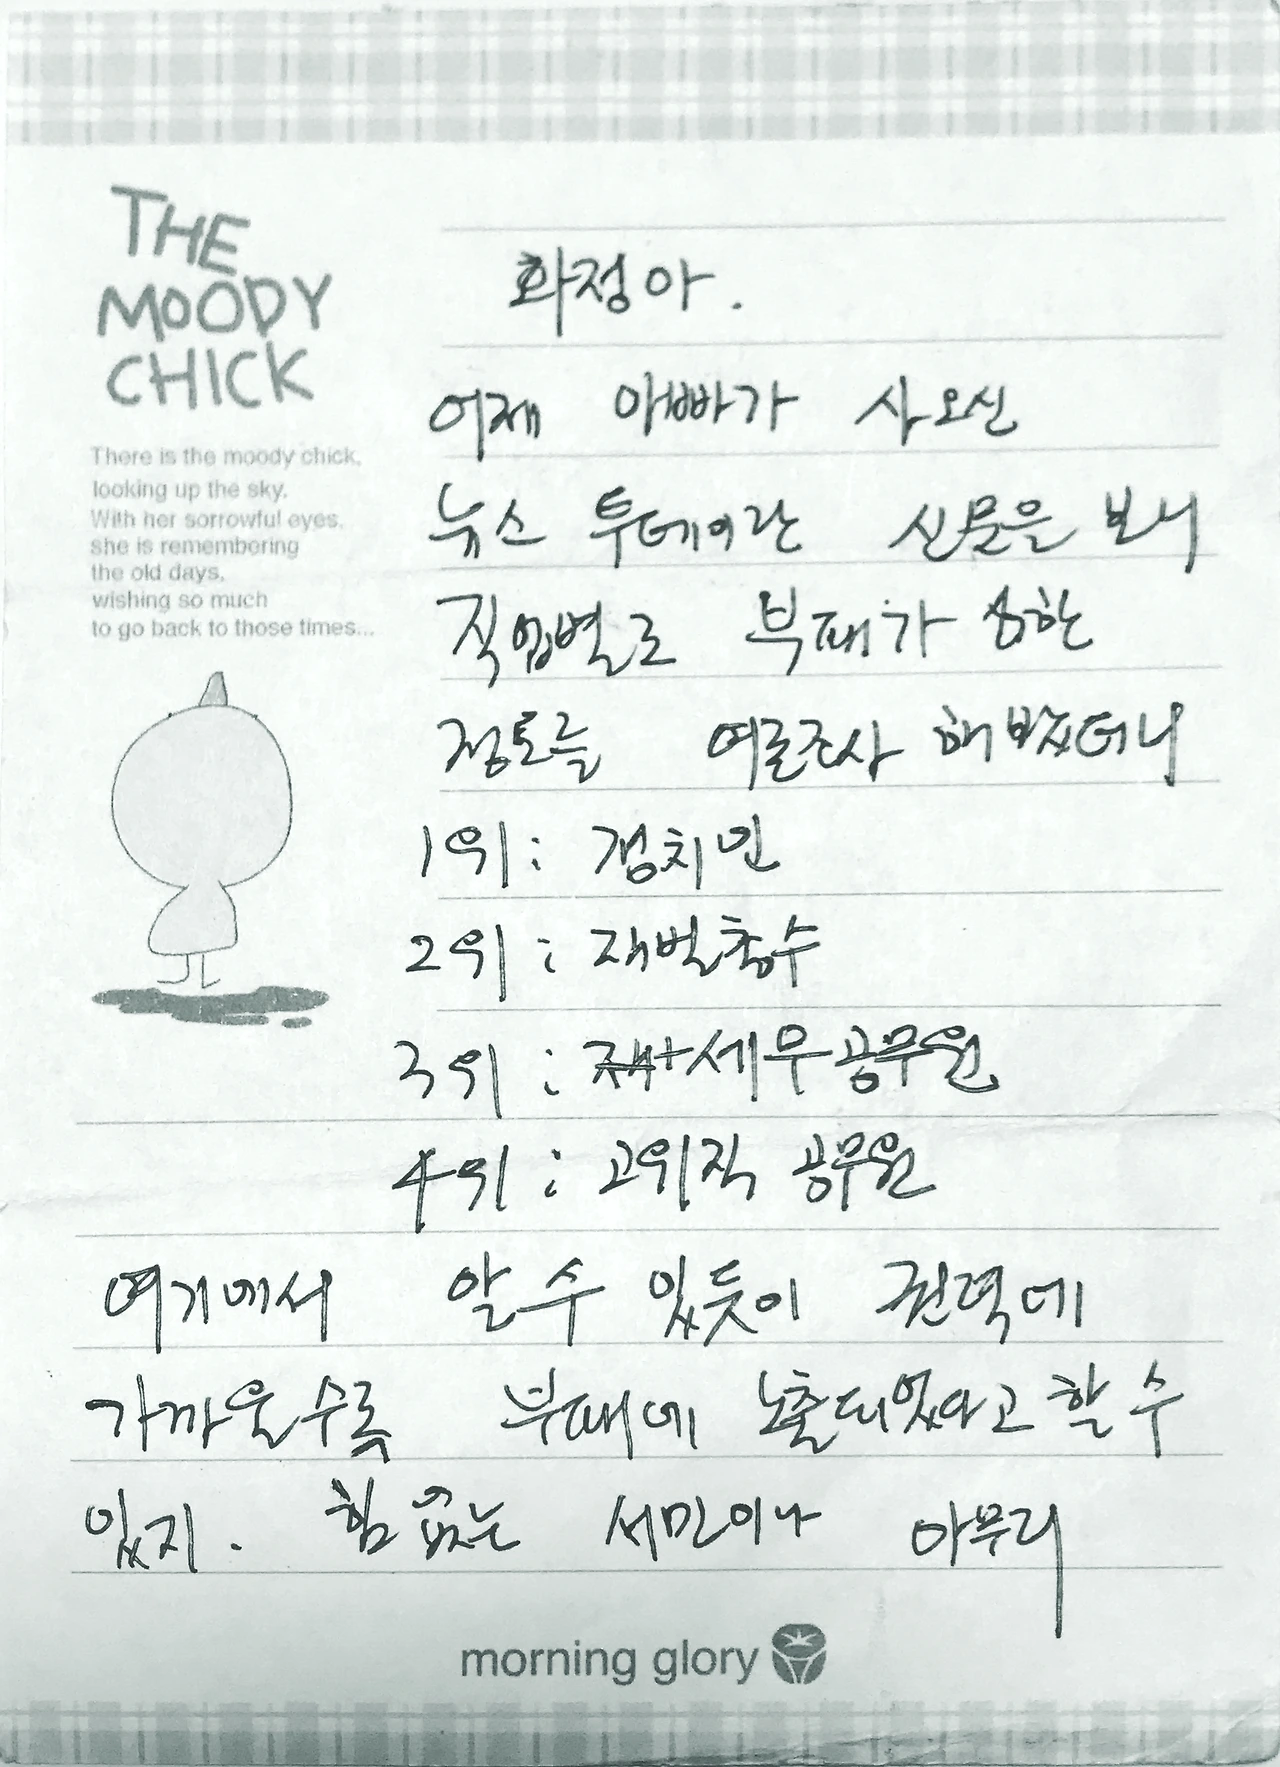 THE
MOODY
CHICK
There is the moody chick,
looking up the sky.
With her sorrowful eyes,
she is remembering
the old days,
wishing so much
to go back to those times...
화정아.
어제 아빠가 사오신
뉴스 투데이란 신문을 보니
직업별로 부패가 심한
정도를 여론조사 해봤더니
1위 : 정치인
2위 : 재벌총수
3위 : 세무공무원
4위 : 고위직 공무원
여기에서 알 수 있듯이 권력에
가까울수록 부패에 노출되었다고 할 수
있지. 힘 없는 서민이나 아무리
morning glory